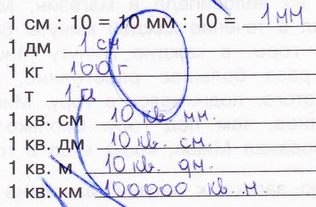 1 см : 10 = 10 мм : 10 = 1 мм
1 дм 1 см
1 кг 100 г
1 т 1 ц
1 кв. см 10 кв. мм.
1 кв. дм 10 кв. см.
1 кв. м 10 кв. дм.
1 кв. км 100000 кв. м.